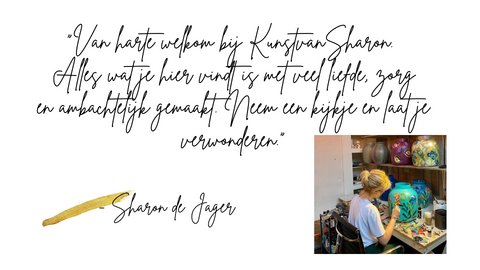 "Van harte welkom bij KunstvanSharon.
Alles wat je hier vindt is met veel liefde, zorg
en ambachtelijk gemaakt. Neem een kijkje en laat je
verwonderen."
- Sharon de Jager